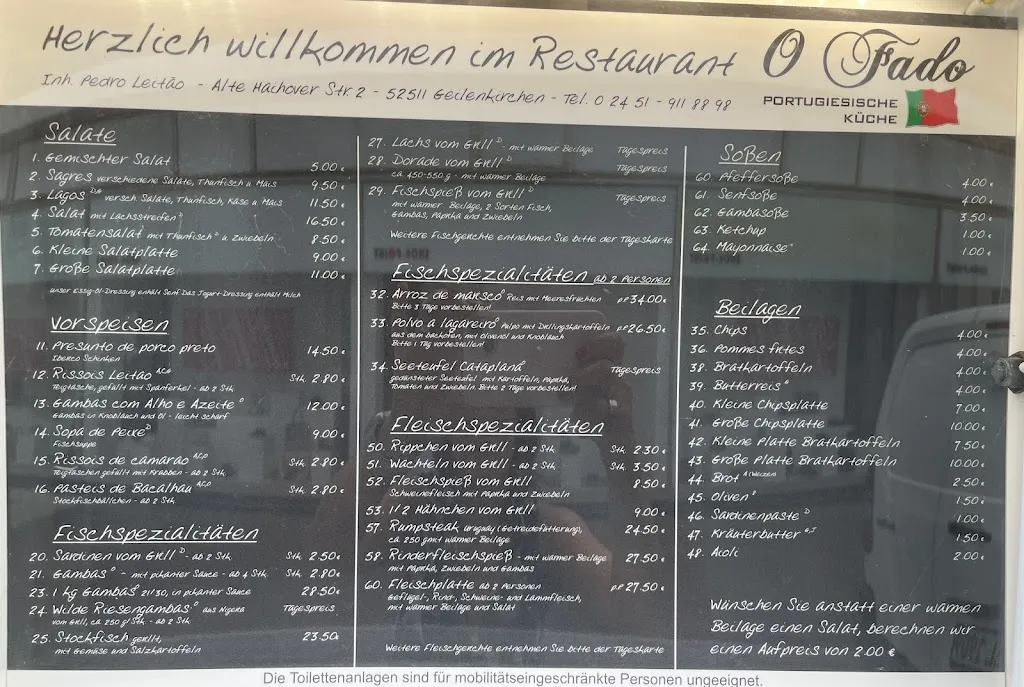 Herzlich willkommen im Restaurant O Fado
Inh. Pedro Leitão - Alte Haihover Str. 2 - 52511 Geilenkirchen - Tel. 0 24 51 - 911 88 98
PORTUGIESISCHE
KÜCHE
Salate
1. Gemischter Salat 5.00 €
2. Sagres verschiedene Salate, Thunfisch u Mais 9.50 €
3. Lagos versch. Salate, Thunfisch, Käse u Mais 11.50 €
4. Salat mit Lachsstreifen 16.50 €
5. Tomatensalat mit Thunfisch u. Zwiebeln 8.50 €
6. Kleine Salatplatte 9.00 €
7. Große Salatplatte 11.00 €
unser Essig-Öl-Dressing enthält Senf Das Jogurt-Dressing enthält Milch
Vorspeisen
11. Presunto de porco preto 14.50 €
Iberico Schinken
12. Rissois Leitão A,C,G Stk. 2.80 €
Teigtasche, gefüllt mit Spanferkel - ab 2 Stk.
13. Gambas com Alho e Azeite 12.00 €
Gambas in Knoblauch und Öl - leicht scharf
14. Sopa de Peixe D 9.00 €
Fischsuppe
15. Rissois de camarao Stk. 2.80 €
Teigtaschen gefüllt mit Krabben - ab 2 Stk
16. Pasteis de Bacalhau Stk. 2.80 €
Stockfischbällchen - ab 2 Stk
Fischspezialitäten
20. Sardinen vom Grill D - ab 2 Stk. Stk 2.50 €
21. Gambas - mit pikanter Sauce - ab 4 Stk. Stk. 2.80 €
23. 1 kg Gambas 21/30, in pikanter Sauce 28.50 €
24. Wilde Riesengambas aus Nigeria Tagespreis
vom Grill, ca. 250 g/ Stk - ab 2 Stk.
25. Stockfisch grillt, 23.50
mit Gemüse und Salzkartoffeln
27. Lachs vom Grill D - mit warmer Beilage Tagespreis
28. Dorade vom Grill D Tagespreis
ca. 450-550 g - mit warmer Beilage
29. Fischspieß vom Grill D Tagespreis
mit warmer Beilage, 2 Sorten Fisch,
Gambas, Paprika und Zwiebeln
Weitere Fischgerichte entnehmen Sie bitte der Tageskarte
Fischspezialitäten ab 2 Personen
32. Arroz de marisco Reis mit Meeresfrüchten p.P 34.00 €
Bitte 3 Tage vorbestellen!
33. Polvo a lagareiro Pulpo mit Drillingskartoffeln p.P 26.50 €
aus dem Backofen, mit Olivenöl und Knoblauch
Bitte 1 Tag vorbestellen!
34. Seeteufel Cataplana Tagespreis
gedünsteter Seeteufel mit Kartoffeln, Paprika,
Tomaten und Zwiebeln. Bitte 2 Tage vorbestellen!
Fleischspezialitäten
50. Rippchen vom Grill - ab 2 Stk. Stk 2.30 €
51. Wachteln vom Grill - ab 2 Stk. Stk 3.50 €
52. Fleischspieß vom Grill 8.50 €
Schweinefleisch mit Paprika und Zwiebeln
53. 1/2 Hähnchen vom Grill 9.00 €
57. Rumpsteak Uruguay (Getreidefütterung), 24.50 €
ca. 250 g mit warmer Beilage
58. Rinderfleischspieß - mit warmer Beilage 27.50 €
mit Paprika, Zwiebeln und Gambas
60. Fleischplatte ab 2 Personen p.P 27.50 €
Geflügel-, Rind-, Schweine- und Lammfleisch,
mit warmer Beilage und Salat
Weitere Fleischgerichte entnehmen Sie bitte der Tageskarte
Soßen
60. Pfeffersoße 4.00 €
61. Senfsoße 4.00 €
62. Gambasoße 3.50 €
63. Ketchup 1.00 €
64. Mayonnaise 1.00 €
Beilagen
35. Chips 4.00 €
36. Pommes frites 4.00 €
38. Bratkartoffeln 4.00 €
39. Butterreis 4.00 €
40. Kleine Chipsplatte 7.00 €
41. Große Chipsplatte 10.00 €
42. Kleine Platte Bratkartoffeln 7.50 €
43. Große Platte Bratkartoffeln 10.00 €
44. Brot A (Weizen) 2.50 €
45. Oliven 1.50 €
46. Sardinenpaste D 1.00 €
47. Kräuterbutter G,J 1.50 €
48. Aioli 2.00 €
Wünschen Sie anstatt einer warmen
Beilage einen Salat, berechnen wir
einen Aufpreis von 2.00 €
Die Toilettenanlagen sind für mobilitätseingeschränkte Personen ungeeignet.